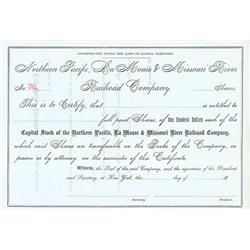 INCORPORATED UNDER THE LAWS OF DAKOTA TERRITORY.
Northern Pacific, La Moure & Missouri River
Railroad Company.
No 36 Shares
This is to Certify, that is entitled to
full paid Shares, of One Hundred Dollars each of the
Capital Stock of the Northern Pacific, La Moure & Missouri River Railroad Company,
which said Shares are transferable on the Books of the Company, in
person or by attorney on the surrender of this Certificate.
Witness, the Seal of the said Company, and the signatures of the President
and Secretary, at New York, this day of 18
Secretary. President.